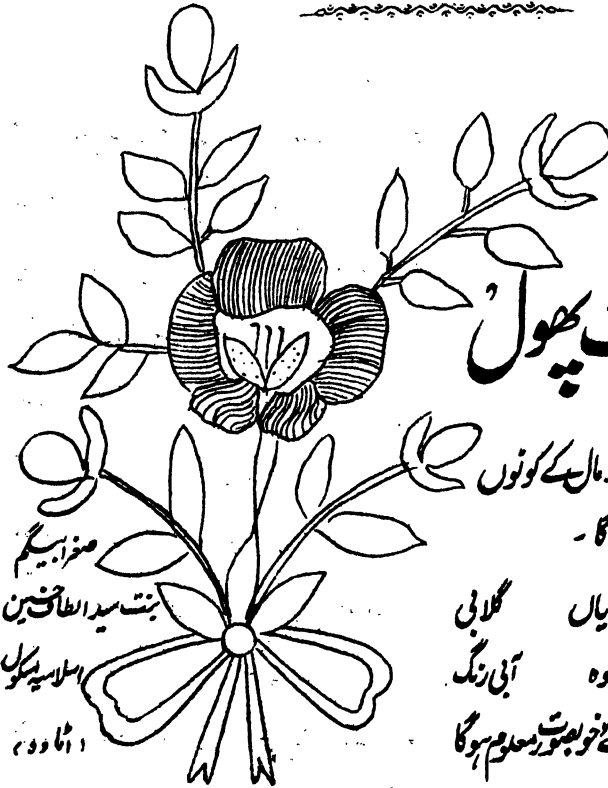 پھول
مال کے کونوں
گا۔
یاں گلابی
وہ آبی رنگ
خوبصورت معلوم ہوگا
صغرا بیگم
بنت سید الطاف حسین
اسلامیہ سکول